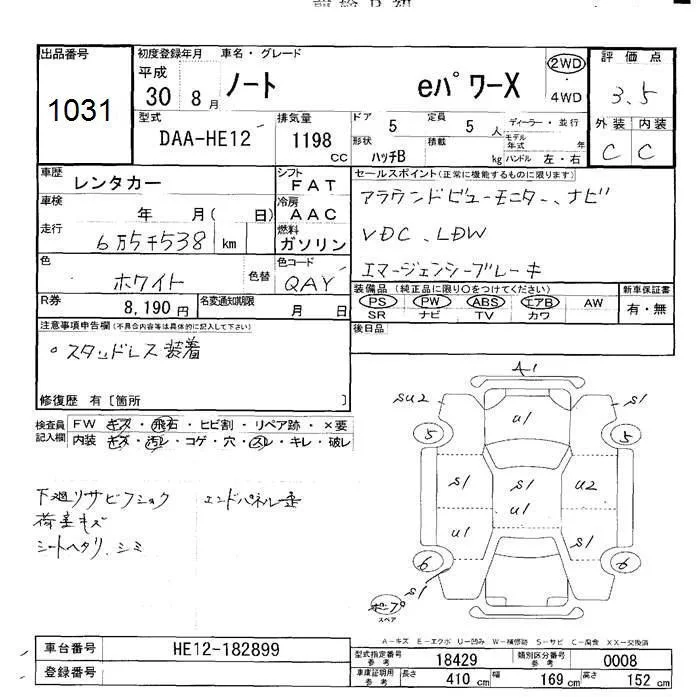 出品番号
1031
初度登録年月
平成
30 8 月
車名・グレード
ノート eパワーX
2WD
4WD
評価点
3.5
外装 内装
C C
型式
DAA-HE12
排気量
1198
cc
ドア 5
定員 5 人
形状 ハッチB
積載 kg
ディーラー・並行
モデル年式 年
ハンドル 左・右
車歴
レンタカー
車検
年 月( 日)
走行
6万5千538 km
シフト
FAT
冷房
AAC
燃料
ガソリン
色
ホワイト
色替
色コード
QAY
R券
8,190 円
名変通知期限
月 日
セールスポイント(正常に機能するものに限ります)
アラウンドビューモニター、ナビ
VDC、LDW
エマージェンシーブレーキ
装備品(純正品に限り○をつけてください)
PS PW ABS エアB AW
SR ナビ TV カワ
新車保証書
有・無
後日品
注意事項申告欄(不具合内容等は具体的に記入して下さい)
。スタッドレス装着
修復歴 有[箇所 ]
検査員記入欄
FW キズ・飛石・ヒビ割・リペア跡・×要
内装 キズ・汚レ・コゲ・穴・スレ・キレ・破レ
下廻リサビフショク
エンドパネル歪
荷室キズ
シートヘタリ、シミ
A1
SU2
S1
U1
5
5
S1
S1
U2
U1
U1
S1
6
6
S1
スペア
A-キズ E-エクボ U-凹み W-補修跡 S-サビ C-腐食 XX-交換済
車台番号
HE12-182899
登録番号
型式指定番号
参考
18429
類別区分番号
参考
0008
車庫証明用
参考
長さ 410 cm
幅 169 cm
高さ 152 cm